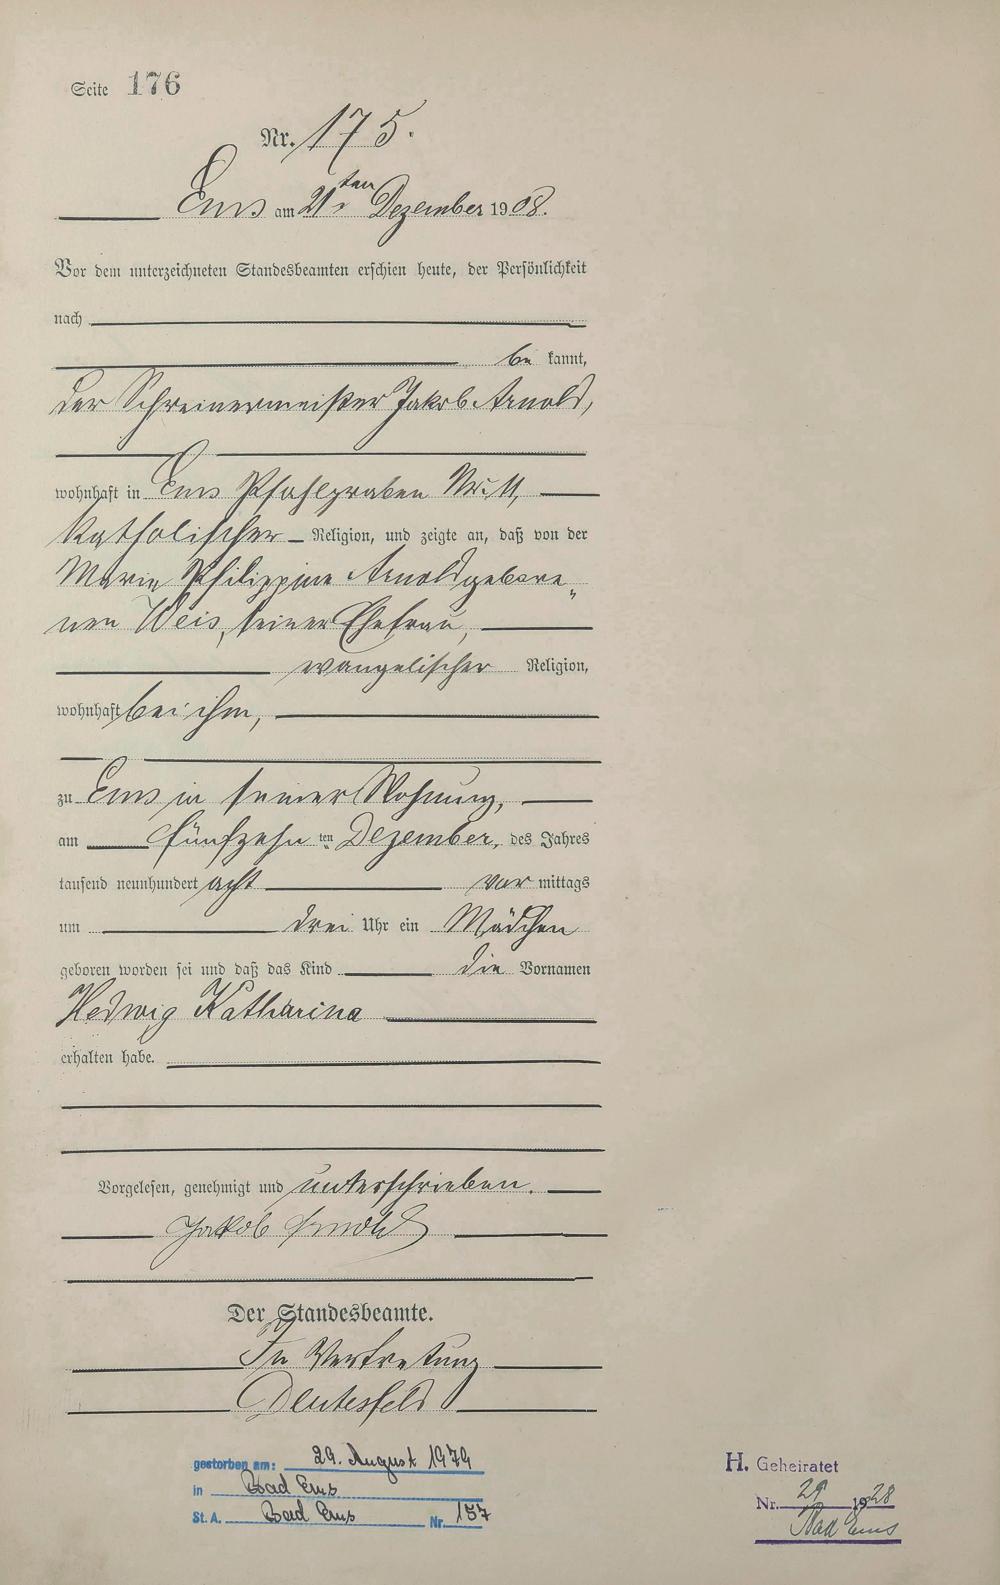 Seite 176
Nr. 175.
Ems am 21ten Dezember 1908.
Vor dem unterzeichneten Standesbeamten erschien heute, der Persönlichkeit
nach
be kannt,
der Schreinermeister Jakob Arnold,
wohnhaft in Ems Pfahlgraben Nr. 11,
katholischer Religion, und zeigte an, daß von der
Marie Philippine Arnold gebore„
nen Weis, seiner Ehefrau,
evangelischer Religion,
wohnhaft bei ihm,
zu Ems in seiner Wohnung,
am fünfzehn ten Dezember, des Jahres
tausend neunhundert acht vor mittags
um drei Uhr ein Mädchen
geboren worden sei und daß das Kind die Vornamen
Hedwig Katharina
erhalten habe.
Vorgelesen, genehmigt und unterschrieben.
Jakob Arnold
Der Standesbeamte.
In Vertretung
gestorben am: 29. August 1979
in Bad Ems
St. A. Bad Ems Nr. 157
H. Geheiratet
Nr. 29 1928
Bad Ems